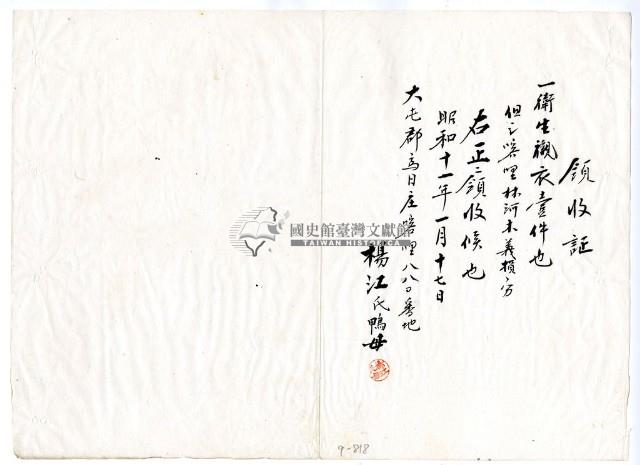 領収証
一衛生襯衣壹件也
但シ喀哩林阿木義損方
右正ニ領收候也
昭和十一年一月十七日
大屯郡烏日庄喀哩八八〇番地
楊江氏鴨母
國史館臺灣文獻館
TAIWAN HISTORICA
9-818